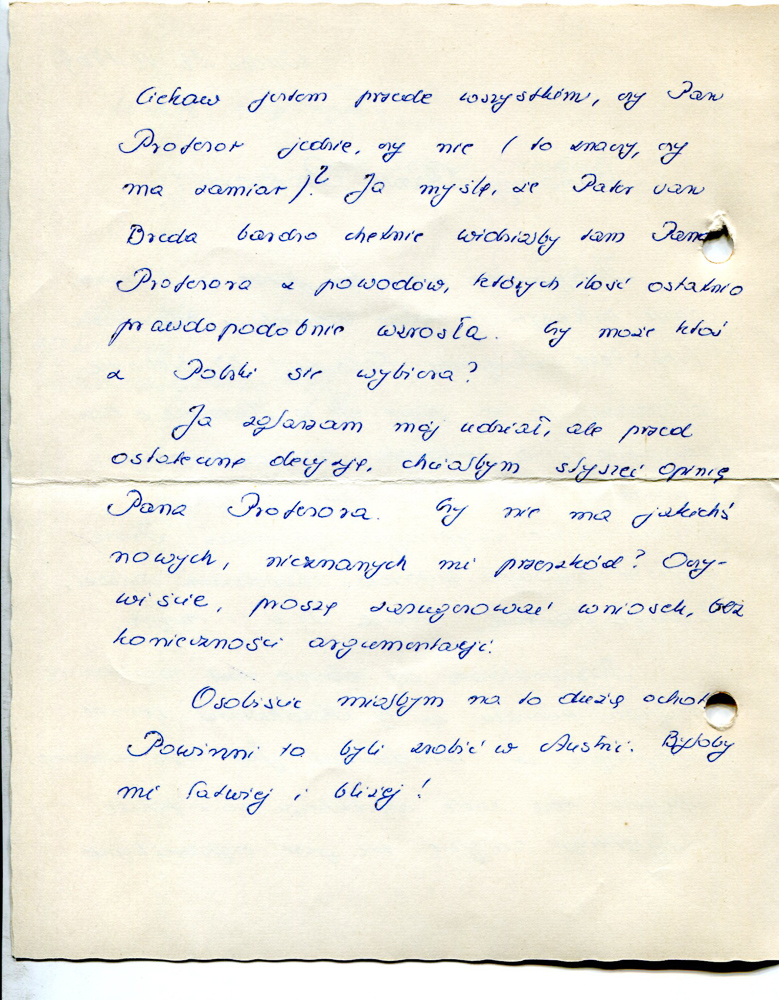 Ciekaw jestem przede wszystkim, czy Pan
Profesor jedzie, czy nie (to znaczy, czy
ma zamiar)? Ja myślę, że Pater van
Breda bardzo chętnie widziałby tam Pana
Profesora z powodów, których ilość ostatnio
prawdopodobnie wzrosła. Czy może ktoś
z Polski się wybiera?
Ja zgłaszam mój udział, ale przed
ostateczną decyzją, chciałbym słyszeć opinię
Pana Profesora. Czy nie ma jakichś
nowych, nieznanych mi przeszkód? Oczy-
wiście, proszę zasugerować wniosek, bez
konieczności argumentacji.
Osobiście miałbym na to dużą ochotę
Powinni to byli zrobić w Austrii. Byłoby
mi łatwiej i bliżej!